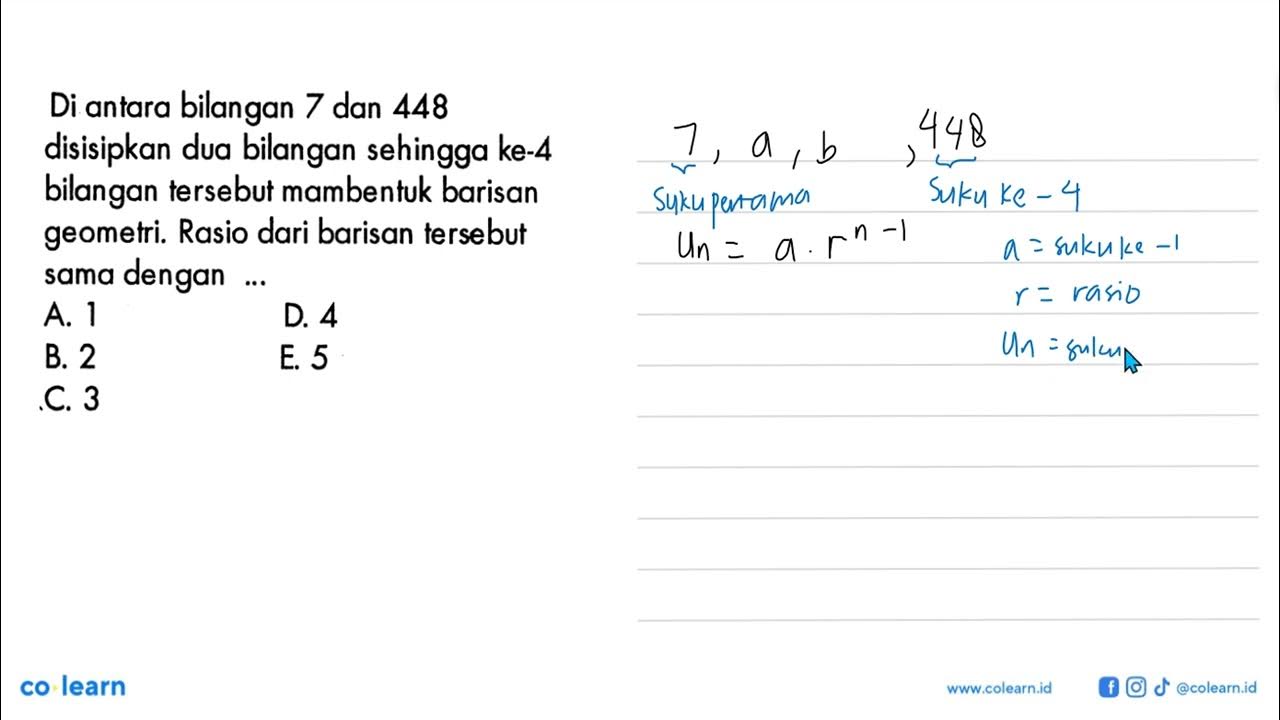 Di antara bilangan 7 dan 448
disisipkan dua bilangan sehingga ke-4
bilangan tersebut mambentuk barisan
geometri. Rasio dari barisan tersebut
sama dengan ...
A. 1
D. 4
B. 2
E. 5
C. 3
7, a, b , 448
suku pertama
suku ke - 4
Un = a . r^n - 1
a = suku ke - 1
r = rasio
Un = suku
co learn
www.colearn.id
@colearn.id